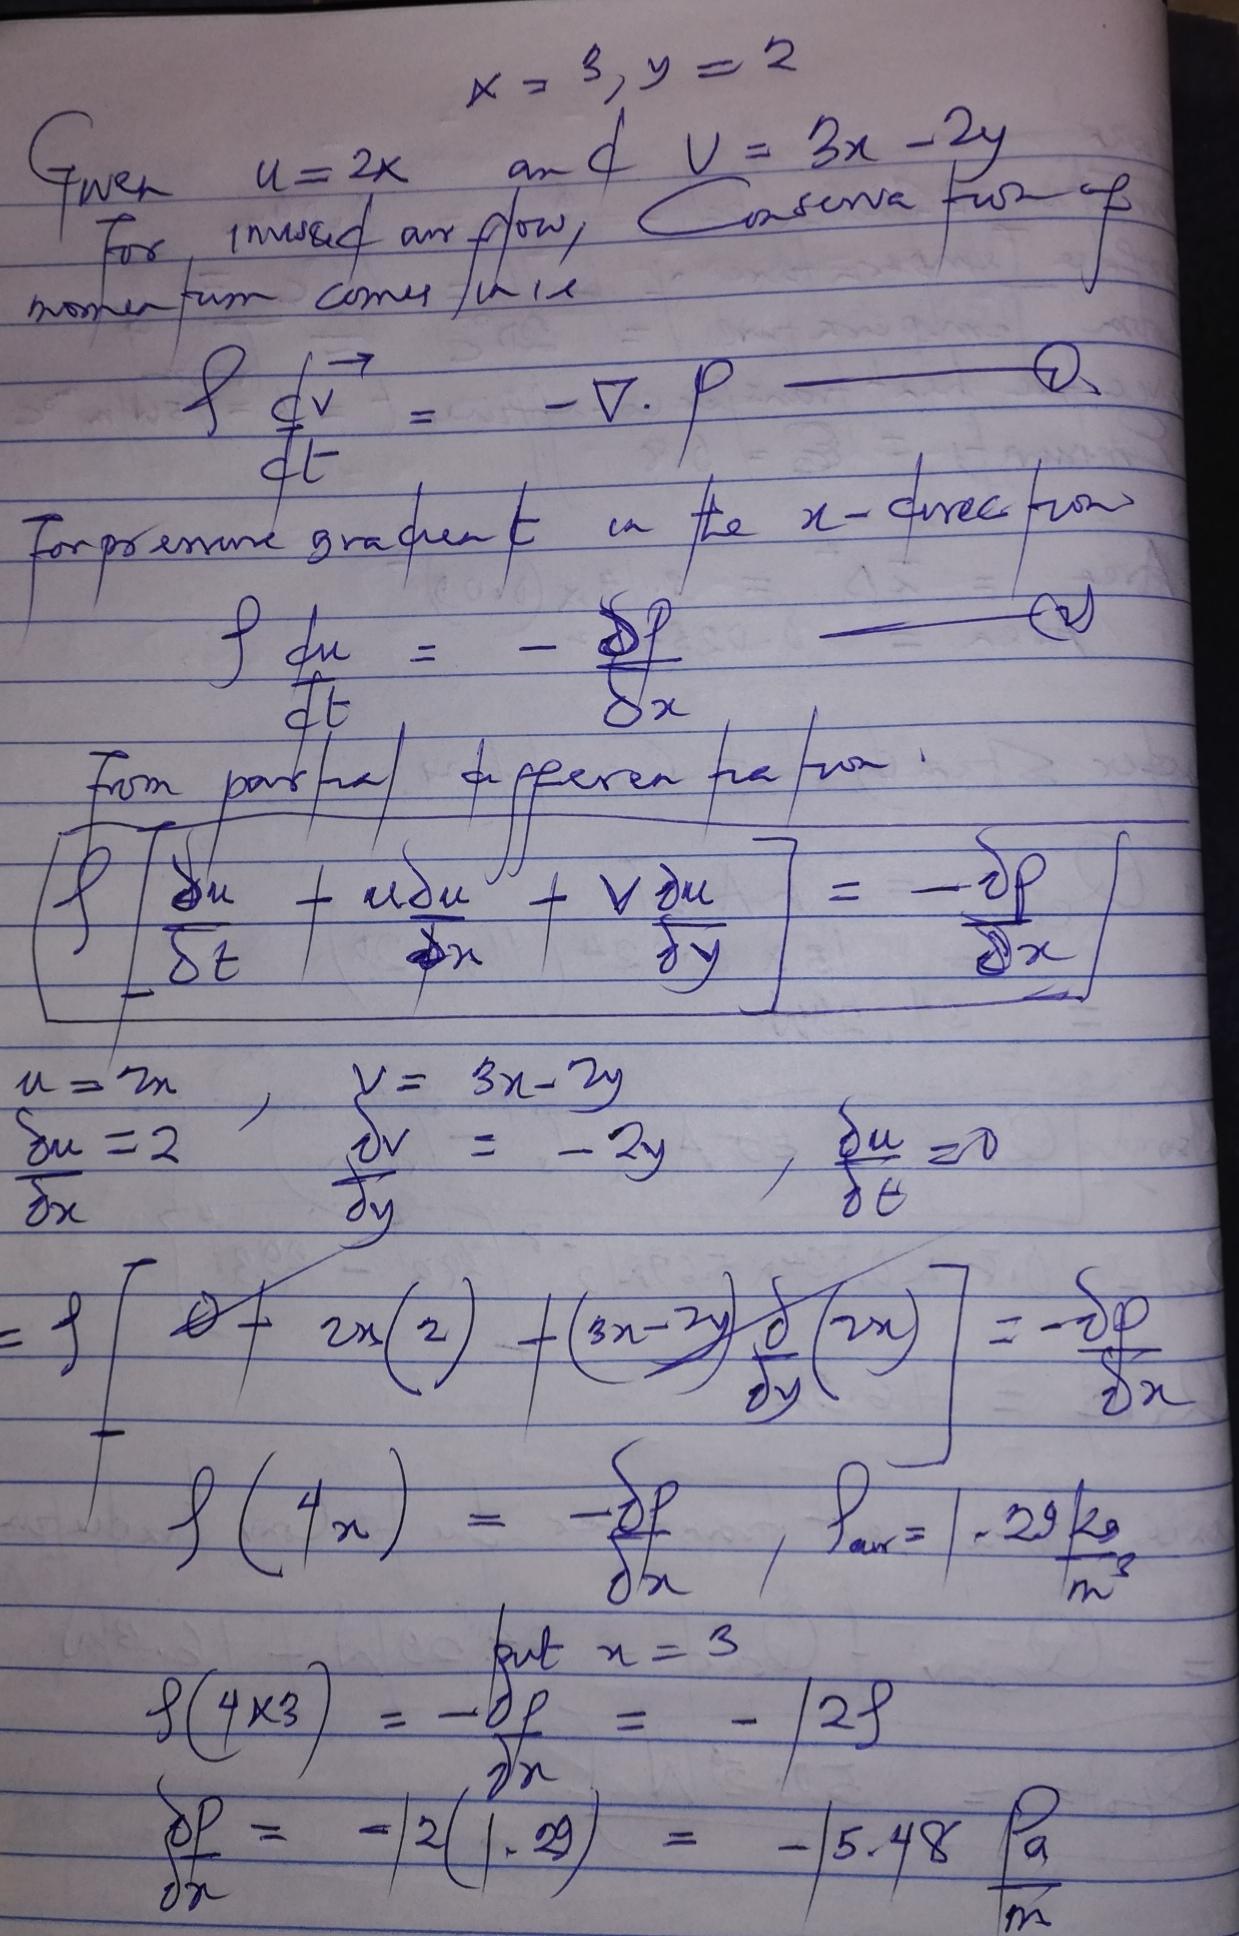 x = 3, y = 2
Given u = 2x and V = 3x - 2y
For inviscid air flow, Conservation of
momentum comes in ie
ρ dv⃗/dt = - ∇. P —— ①
For pressure gradient in the x-direction
ρ du/dt = - δP/δx —— ②
From partial differentiation.
ρ [ δu/δt + u δu/δx + V δu/δy ] = - δp/δx
u = 2x , V = 3x - 2y
δu/δx = 2 δv/δy = - 2y , δu/δt = 0
= ρ [ 0 + 2x(2) + (3x-2y) δ/δy (2x) ] = - δp/δx
ρ (4x) = - δP/δx , ρair = 1.29 kg/m³
put x = 3
ρ(4x3) = - δp/δx = - 12ρ
δP/δx = -12(1.29) = -15.48 Pa/m